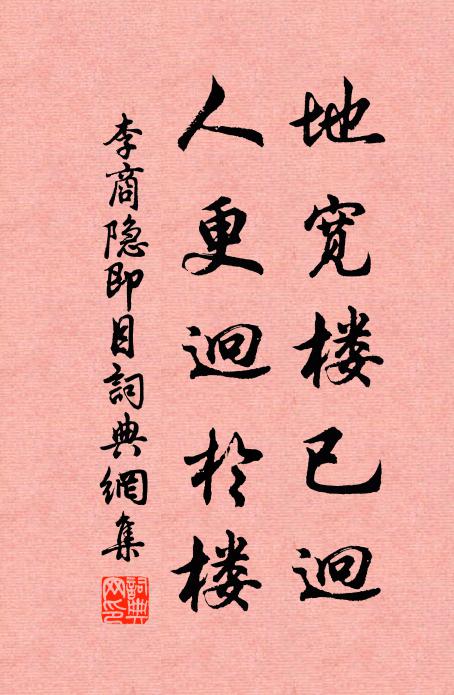 地宽楼已迥
人更迥於楼
李商隐即目詞典網集
詞典網印